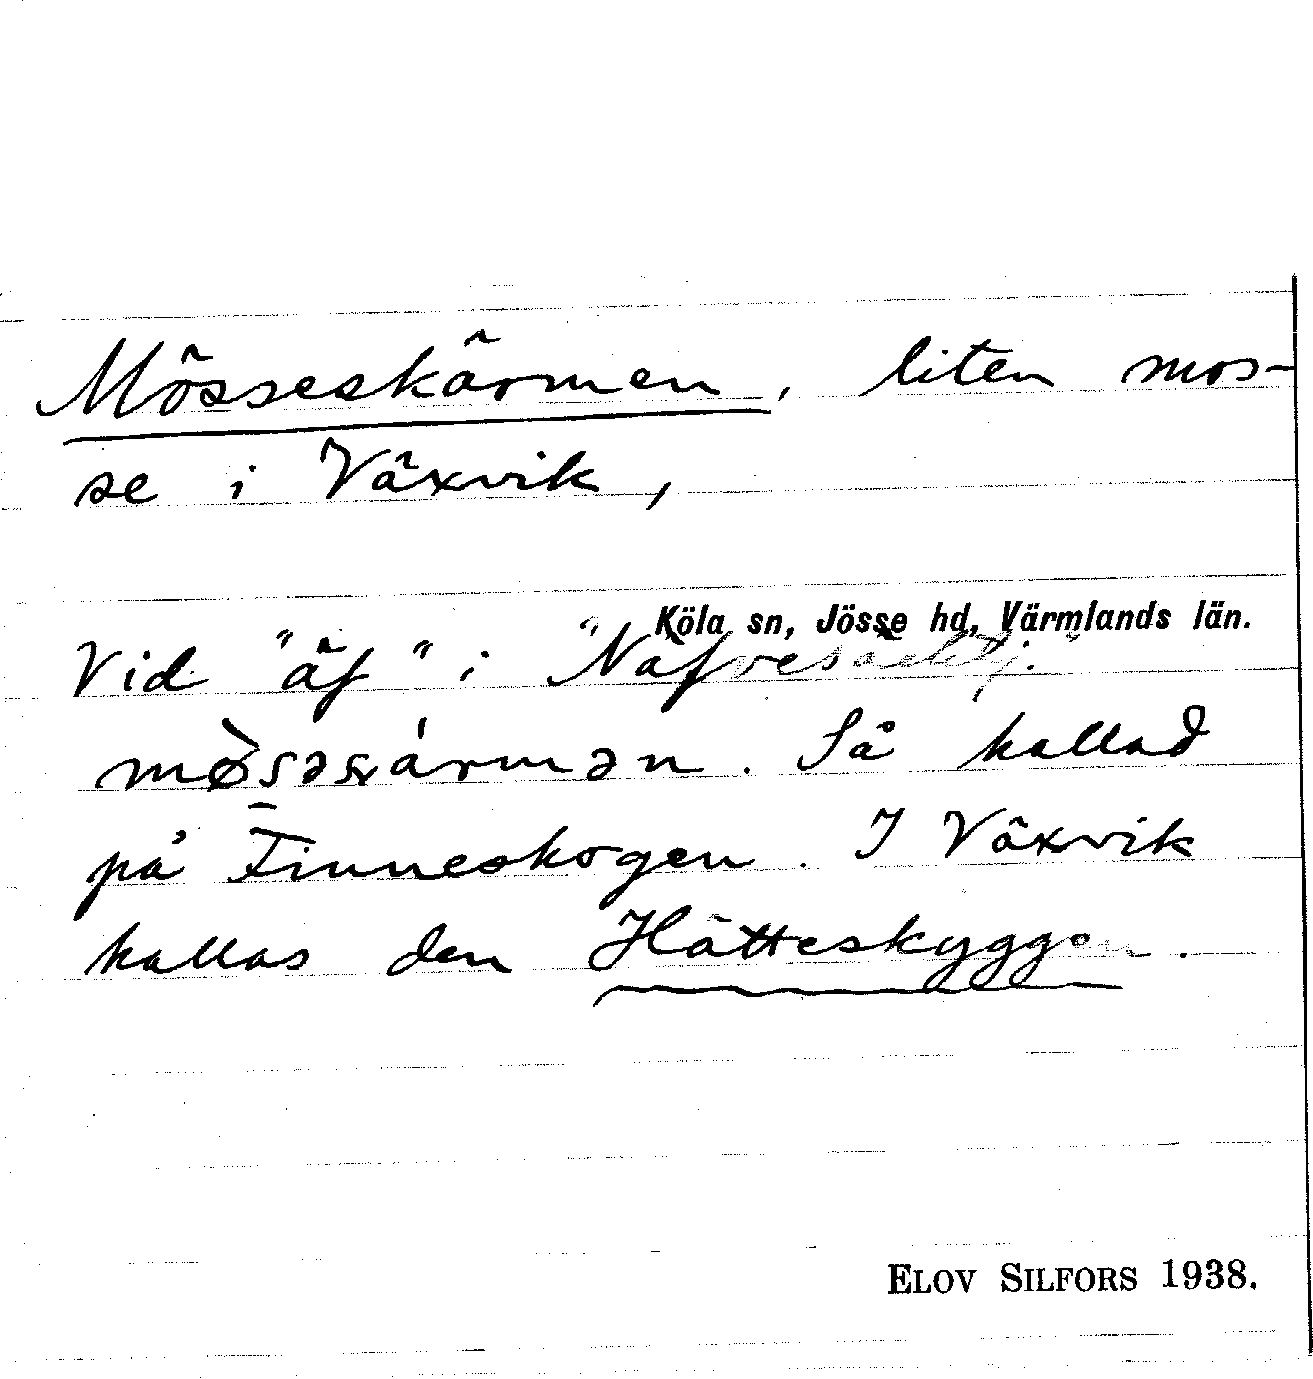 Mösseskärmen, liten mos-
se i Växvik,
Köla sn, Jösse hd, Värmlands län.
Vid "äf" i
På kallad
på Finneskogen. I Växvik
kallas den Hätteskyggen.
ELOV SILFORS 1938.